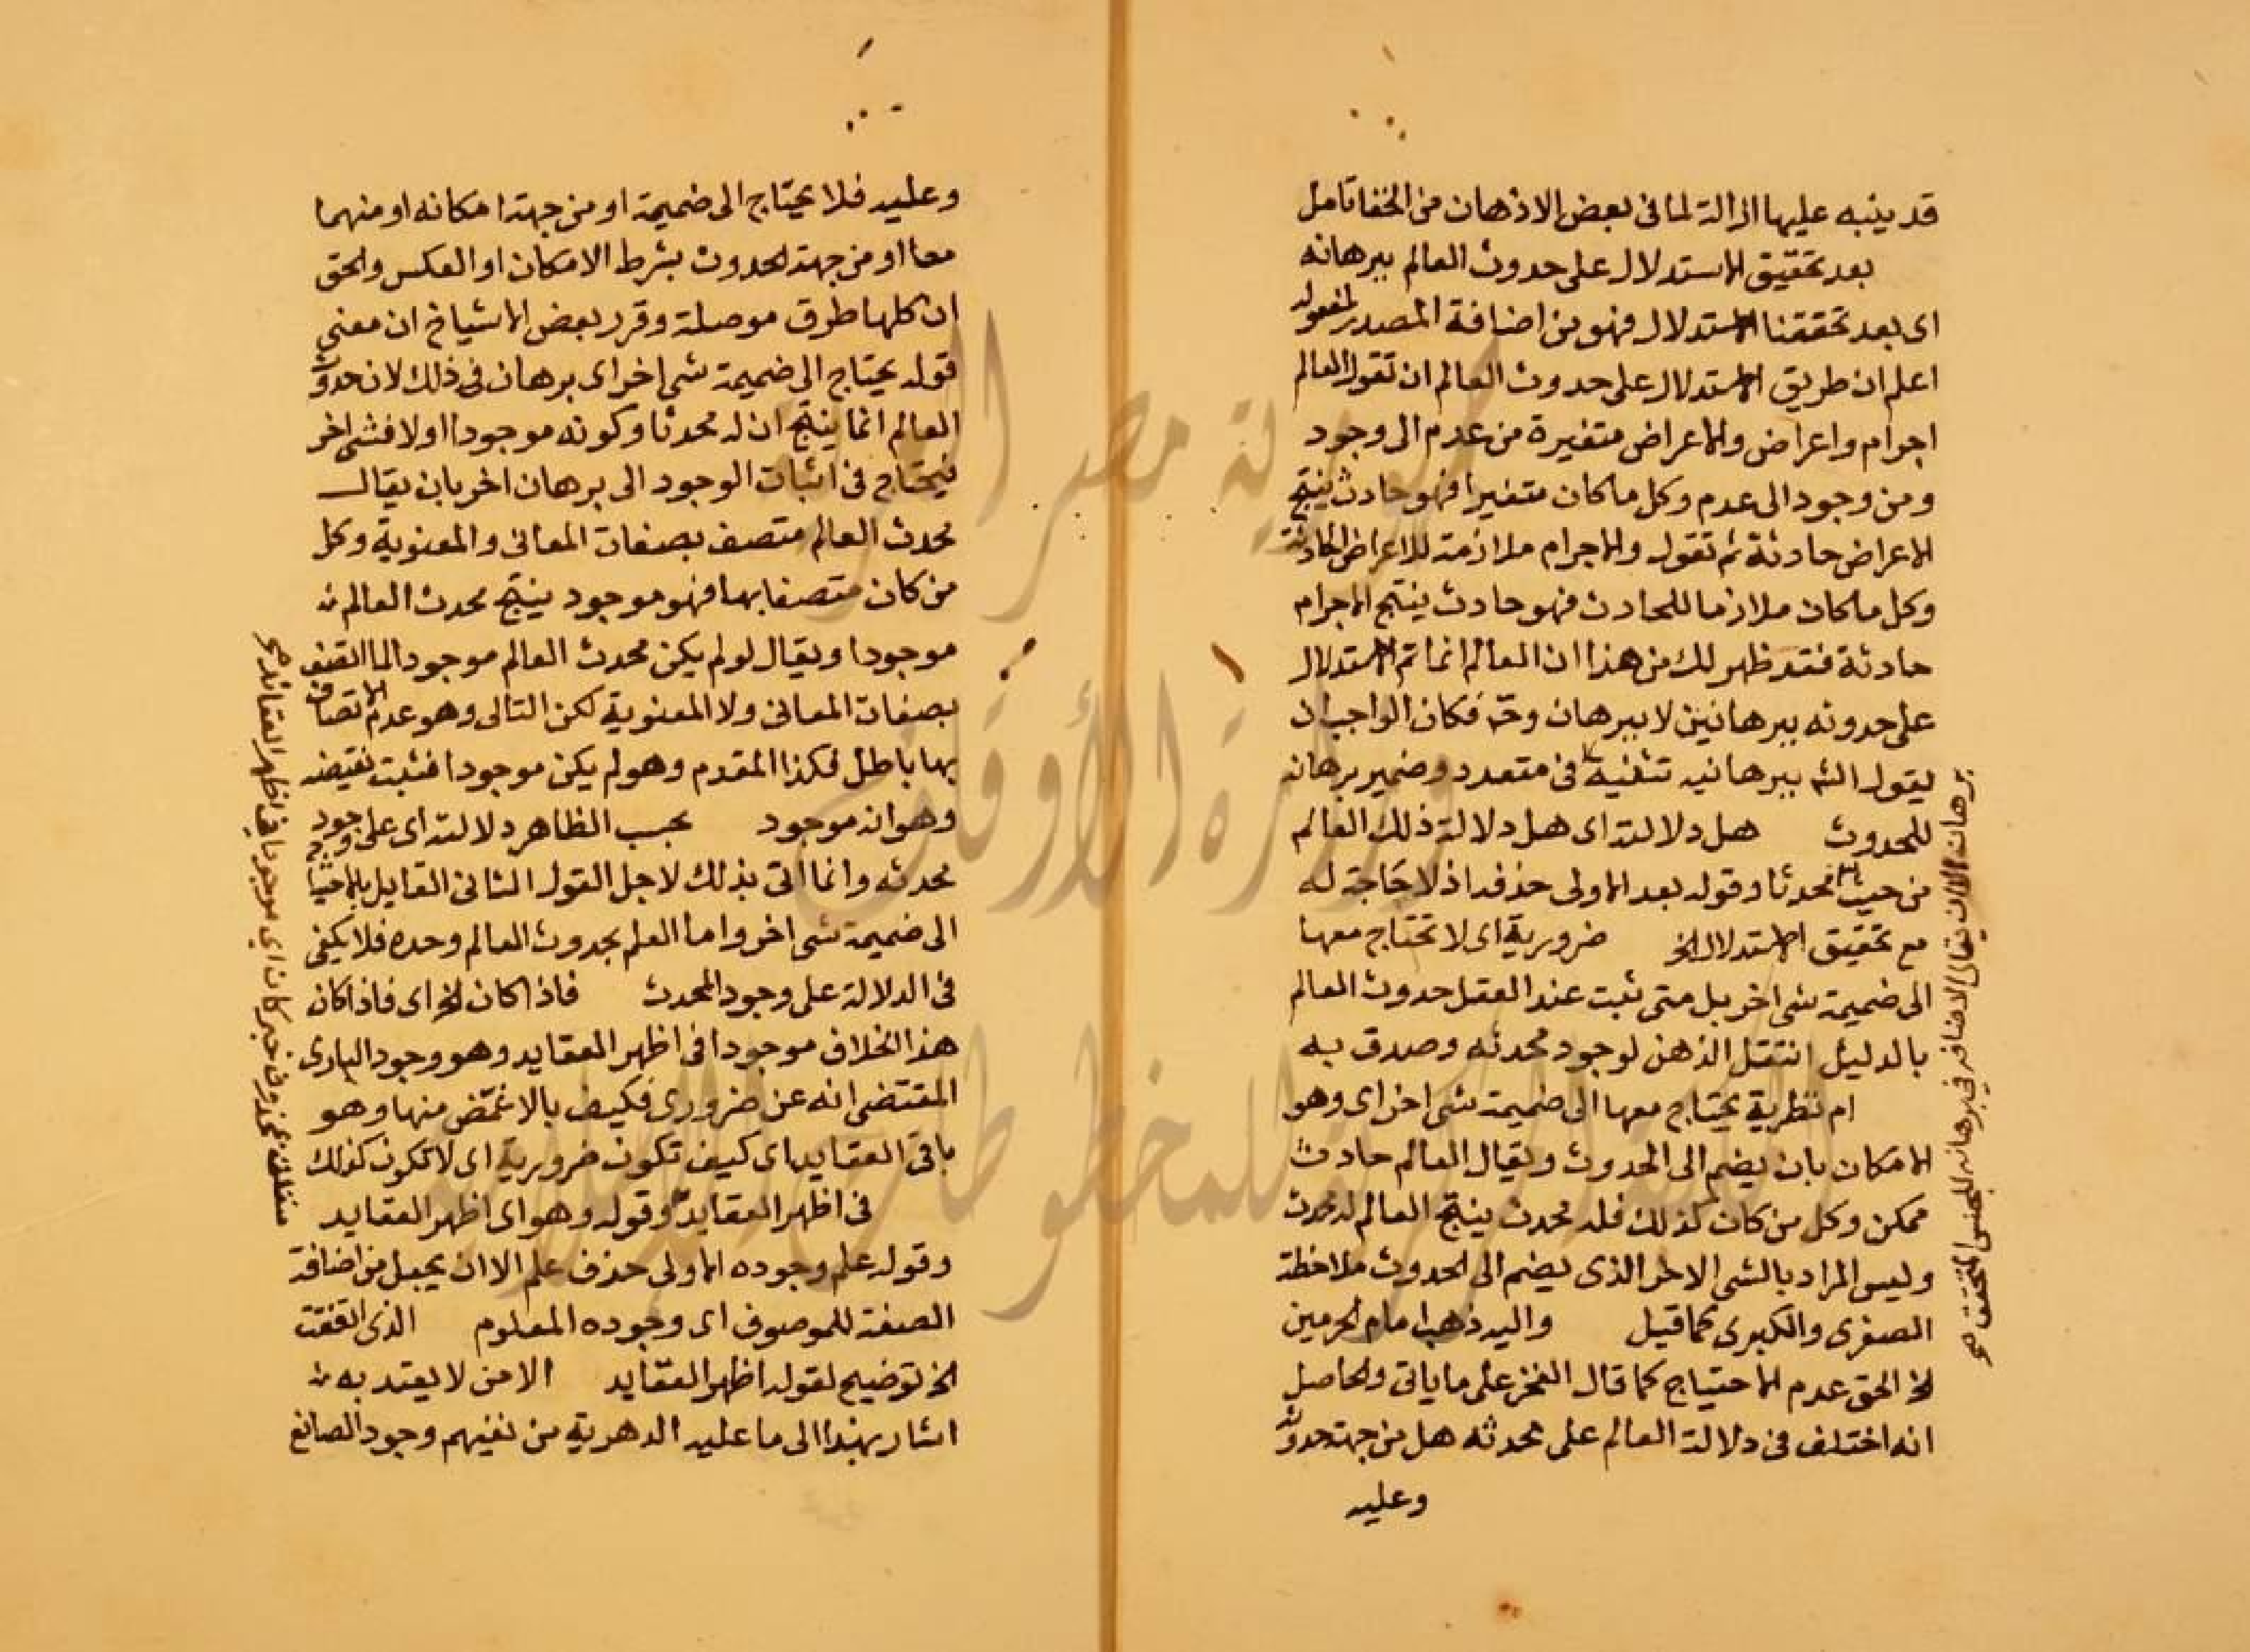 قد ينبه عليها ازالة لما فى بعض الاذهان من الخفا تامل
بعد تحقيق الاستدلال على حدوث العالم ببرهانه
اى بعد تحققنا الاستدلال فهو من اضافة المصدر لمفعوله
اعلم ان طريق الاستدلال على حدوث العالم ان تقول العالم
اجرام واعراض والاعراض متغيرة من عدم الى وجود
ومن وجود الى عدم وكل ما كان متغيرا فهو حادث ينتج
الاعراض حادثة ثم تقول والاجرام ملازمة للاعراض الحادثة
وكل ما كان ملازما للحادث فهو حادث ينتج الاجرام
حادثة فقد ظهر لك من هذا ان العالم انما تم الاستدلال
على حدوثه ببرهانين لا ببرهان وح فكان الواجب ان
يقول الش ببرهانيه تثنية لا فى متعدد وضمير برهانه
للحدوث هل دلالته اى هل دلالة ذلك العالم
من حيث محدثا وقوله بعد الاولى حذفه اذ لا حاجة له
مع تحقيق الاستدلال الخ ضرورية اى لا تحتاج معها
الى ضميمة شى اخر بل متى ثبت عند العقل حدوث العالم
بالدليل انتقل الذهن لوجود محدثه وصدق به
ام نظرية يحتاج معها الى ضميمة شى اخر اى وهو
الامكان بان يضم الى الحدوث ويقال العالم حادث
ممكن وكل من كان كذلك فله محدث ينتج العالم له محدث
وليس المراد بالشى الاخر الذى يضم الى الحدوث ملاحظة
الصغرى والكبرى كما قيل واليه ذهب امام الحرمين
الخ الحق عدم الاحتياج كما قال الفخر على ما ياتى والحاصل
انه اختلف فى دلالة العالم على محدثه هل من جهة حدوثه
وعليه
برهان الا ان يقال الاضافة فى برهانه للجنس المتحقق صح
وعليه فلا يحتاج الى ضميمة او من جهة امكانه او منهما
معا او من جهة الحدوث بشرط الامكان او العكس والحق
ان كلها طرق موصلة وقرر بعض الاشياخ ان معنى
قوله يحتاج الى ضميمة شى اخر اى برهان فى ذلك لان حدوث
العالم انما ينتج ان له محدثا وكونه موجودا اولا فشى اخر
فيحتاج فى اثبات الوجود الى برهان اخر بان يقال
محدث العالم متصف بصفات المعانى والمعنوية وكل
من كان متصفا بها فهو موجود ينتج محدث العالم
موجودا ويقال لو لم يكن محدث العالم موجودا لما اتصف
بصفات المعانى ولا المعنوية لكن التالى وهو عدم الاتصاف
بها باطل فكذا المقدم وهو لم يكن موجودا فثبت نقيضه
وهو انه موجود بحسب الظاهر دلالته اى على وجود
محدثه وانما اتى بذلك لاجل القول الثانى القايل بالاحتياج
الى ضميمة شى اخر واما العلم بحدوث العالم وحده فلا يكفى
فى الدلالة على وجود المحدث فاذا كان الخ اى فاذا كان
هذا الخلاف موجودا فى اظهر العقايد وهو وجود البارى
المقتضى انه عن ضرورى فكيف بالاغمض منها وهو
باقى العقايد اى كيف تكون ضرورية اى لا تكون كذلك
فى اظهر العقايد وقوله وهو اى اظهر العقايد
وقوله علم وجوده الاولى حذف علم الا ان يجعل من اضافة
الصفة للموصوف اى وجوده المعلوم الذى اتفقت
الخ توضيح لقوله اظهر العقايد الا من لا يعتد به
اشار بهذا الى ما عليه الدهرية من نفيهم وجود الصانع
متعلق بمحذوف خبر كان اى موجودا فى اظهر العقائد صح